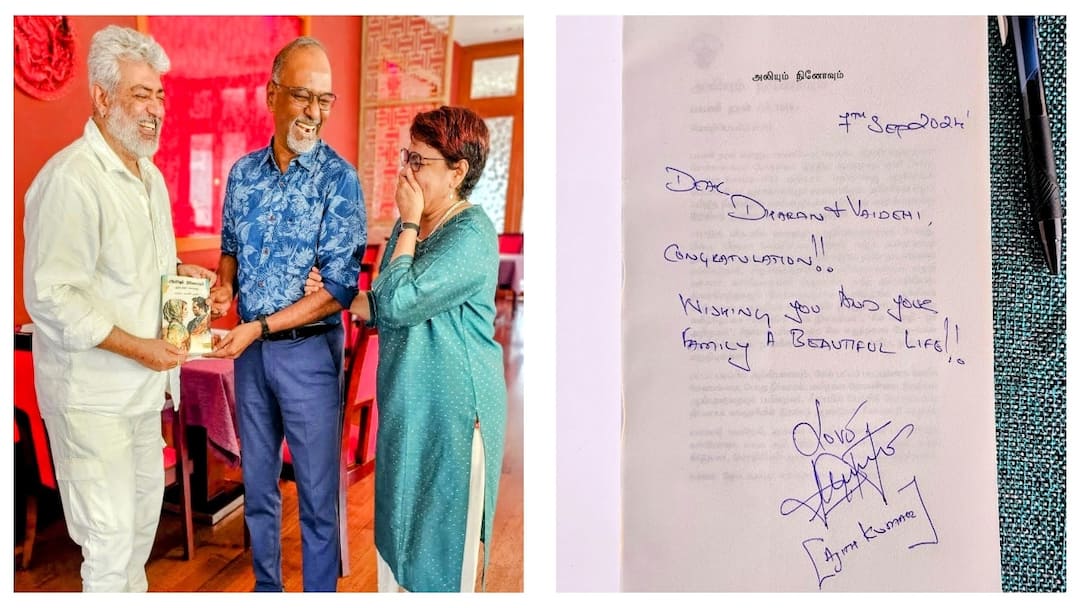 அலியும் நினோவும்
7TH Sep 2024
DEAR
DHARAN & VAIDEHI,
CONGRATULATION!!
WISHING YOU AND YOUR
FAMILY A BEAUTIFUL LIFE!!
Love
[AJITH KUMAR]